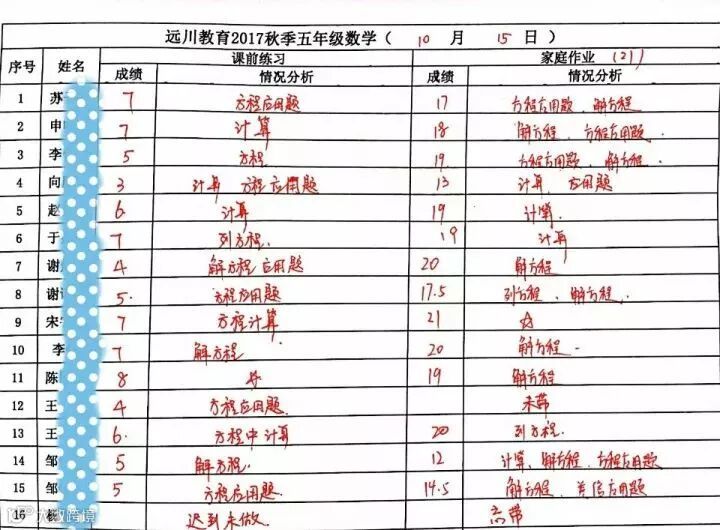 远川教育2017秋季五年级数学（ 10 月 15 日 ）
序号 姓名 课前练习 家庭作业 (21)
成绩 情况分析 成绩 情况分析
1 苏 7 方程应用题 17 方程应用题、解方程
2 申 7 计算 18 解方程、方程应用题
3 李 5 方程 19 方程应用题、解方程
4 向 3 计算 方程应用题 13 计算、应用题
5 赵 6 计算 19 计算
6 于 7 列方程 19 计算
7 谢 4 解方程 应用题 20 解方程
8 谢 5 方程应用题 17.5 列方程、解方程
9 宋 7 方程计算 21 ☆
10 李 7 解方程 20 解方程
11 陈 8 ☆ 19 解方程
12 王 4 方程应用题 未带
13 王 6 方程中计算 20 列方程
14 邹 5 解方程 12 计算、解方程、方程应用题
15 邹 5 方程应用题 14.5 解方程、应用题
16 杨 迟到未做 未带
大数跨境